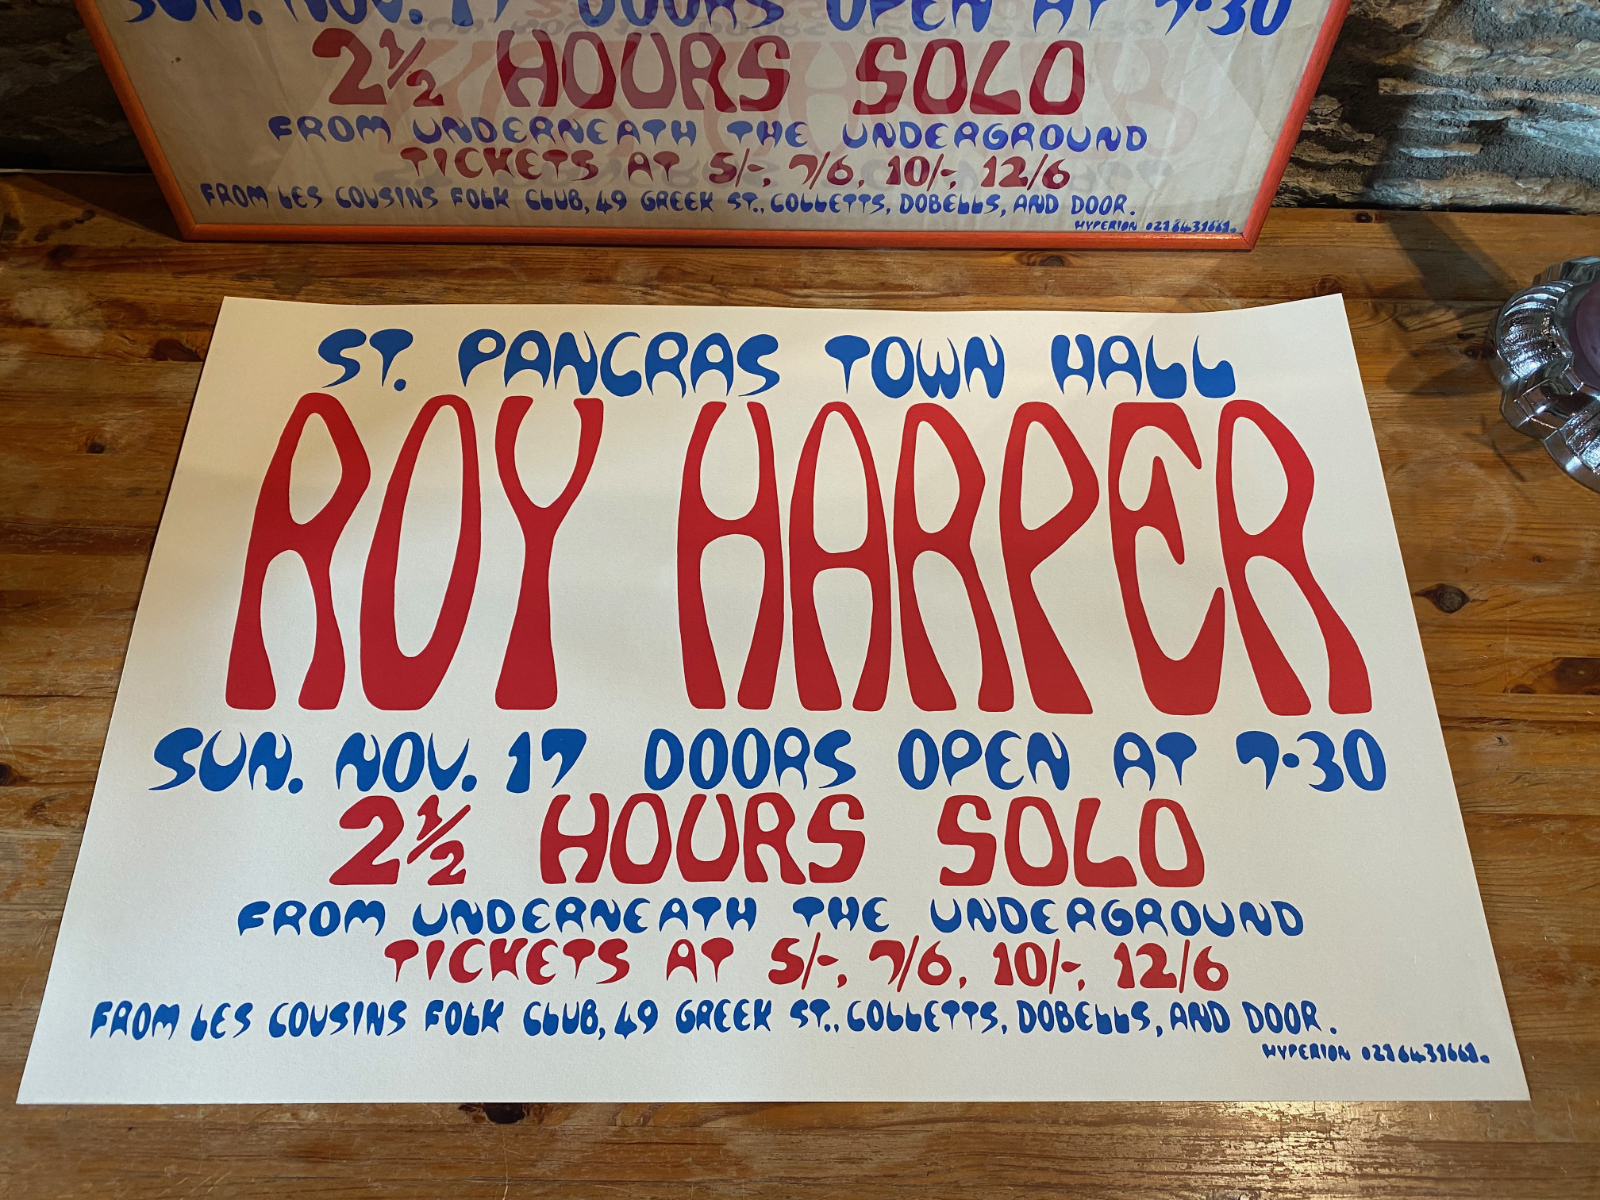 SUN. NOV. 17 DOORS OPEN AT 7·30
2½ HOURS SOLO
FROM UNDERNEATH THE UNDERGROUND
TICKETS AT 5/-, 7/6, 10/-, 12/6
FROM LES COUSINS FOLK CLUB, 49 GREEK ST., COLLETTS, DOBELLS, AND DOOR.
HYPERION 0216431661.
ST. PANCRAS TOWN HALL
ROY HARPER
SUN. NOV. 17 DOORS OPEN AT 7·30
2½ HOURS SOLO
FROM UNDERNEATH THE UNDERGROUND
TICKETS AT 5/-, 7/6, 10/-, 12/6
FROM LES COUSINS FOLK CLUB, 49 GREEK ST., COLLETTS, DOBELLS, AND DOOR.
HYPERION 0216431661.